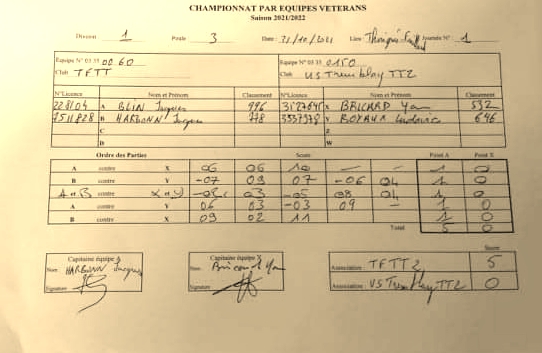 CHAMPIONNAT PAR EQUIPES VETERANS
Saison 2021/2022
Division 1 Poule 3 Date : 31/10/2021 Lieu : Journée N° : 1
Equipe N° 03 35 0060 Equipe N° 03 35 0150
Club TFTT Club US Tremblay TT2
N°Licence Nom et Prénom Classement N°Licence Nom et Prénom Classement
A BLIN Jacques 996 X BRICARD Yan 532
B HARBONN Jacques 778 Y BOYAUX Ludovic 646
C Z
D W
Ordre des Parties Score Point A Point X
A contre X 06 06 10 — — 1 0
B contre Y -07 09 07 -06 04 1 0
A et B contre X et Y 03 -05 08 04 1 0
A contre Y 06 03 -03 09 — 1 0
B contre X 09 02 11 1 0
Total 5 0
Capitaine équipe A Capitaine équipe X Score
Nom HARBONN Jacques Nom Bricard Yan Association : TFTT2 5
Signature Signature Association : US Tremblay TT2 0